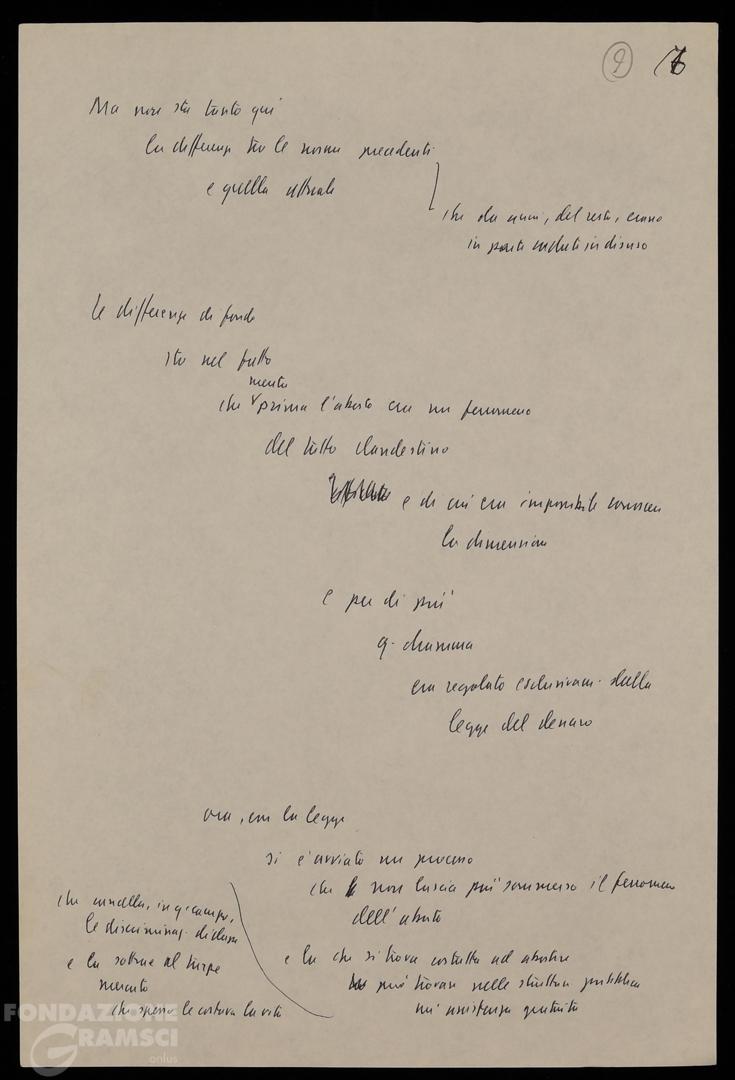 9 7
Ma non sta tanto qui
la differenza tra le norme precedenti
e quella attuale
che da anni, del resto, erano
in parte cadute in disuso
la differenza di fondo
sta nel fatto
mentre
che prima l'aborto era un fenomeno
del tutto clandestino
e di cui era impossibile conoscere
la dimensione
e per di più
q. dramma
era regolato esclusivam. dalla
legge del denaro
ora, con la legge
si è avviato un processo
che non lascia più sommerso il fenomeno
dell'aborto
che cancella, in q. campo,
le discriminaz. di classe
e la sottrae al turpe
mercato
che spesso le costava la vita
e la che si trova costretta ad abortire
può trovare nelle strutture pubbliche
un' assistenza gratuita
FONDAZIONE
GRAMSCI
onlus